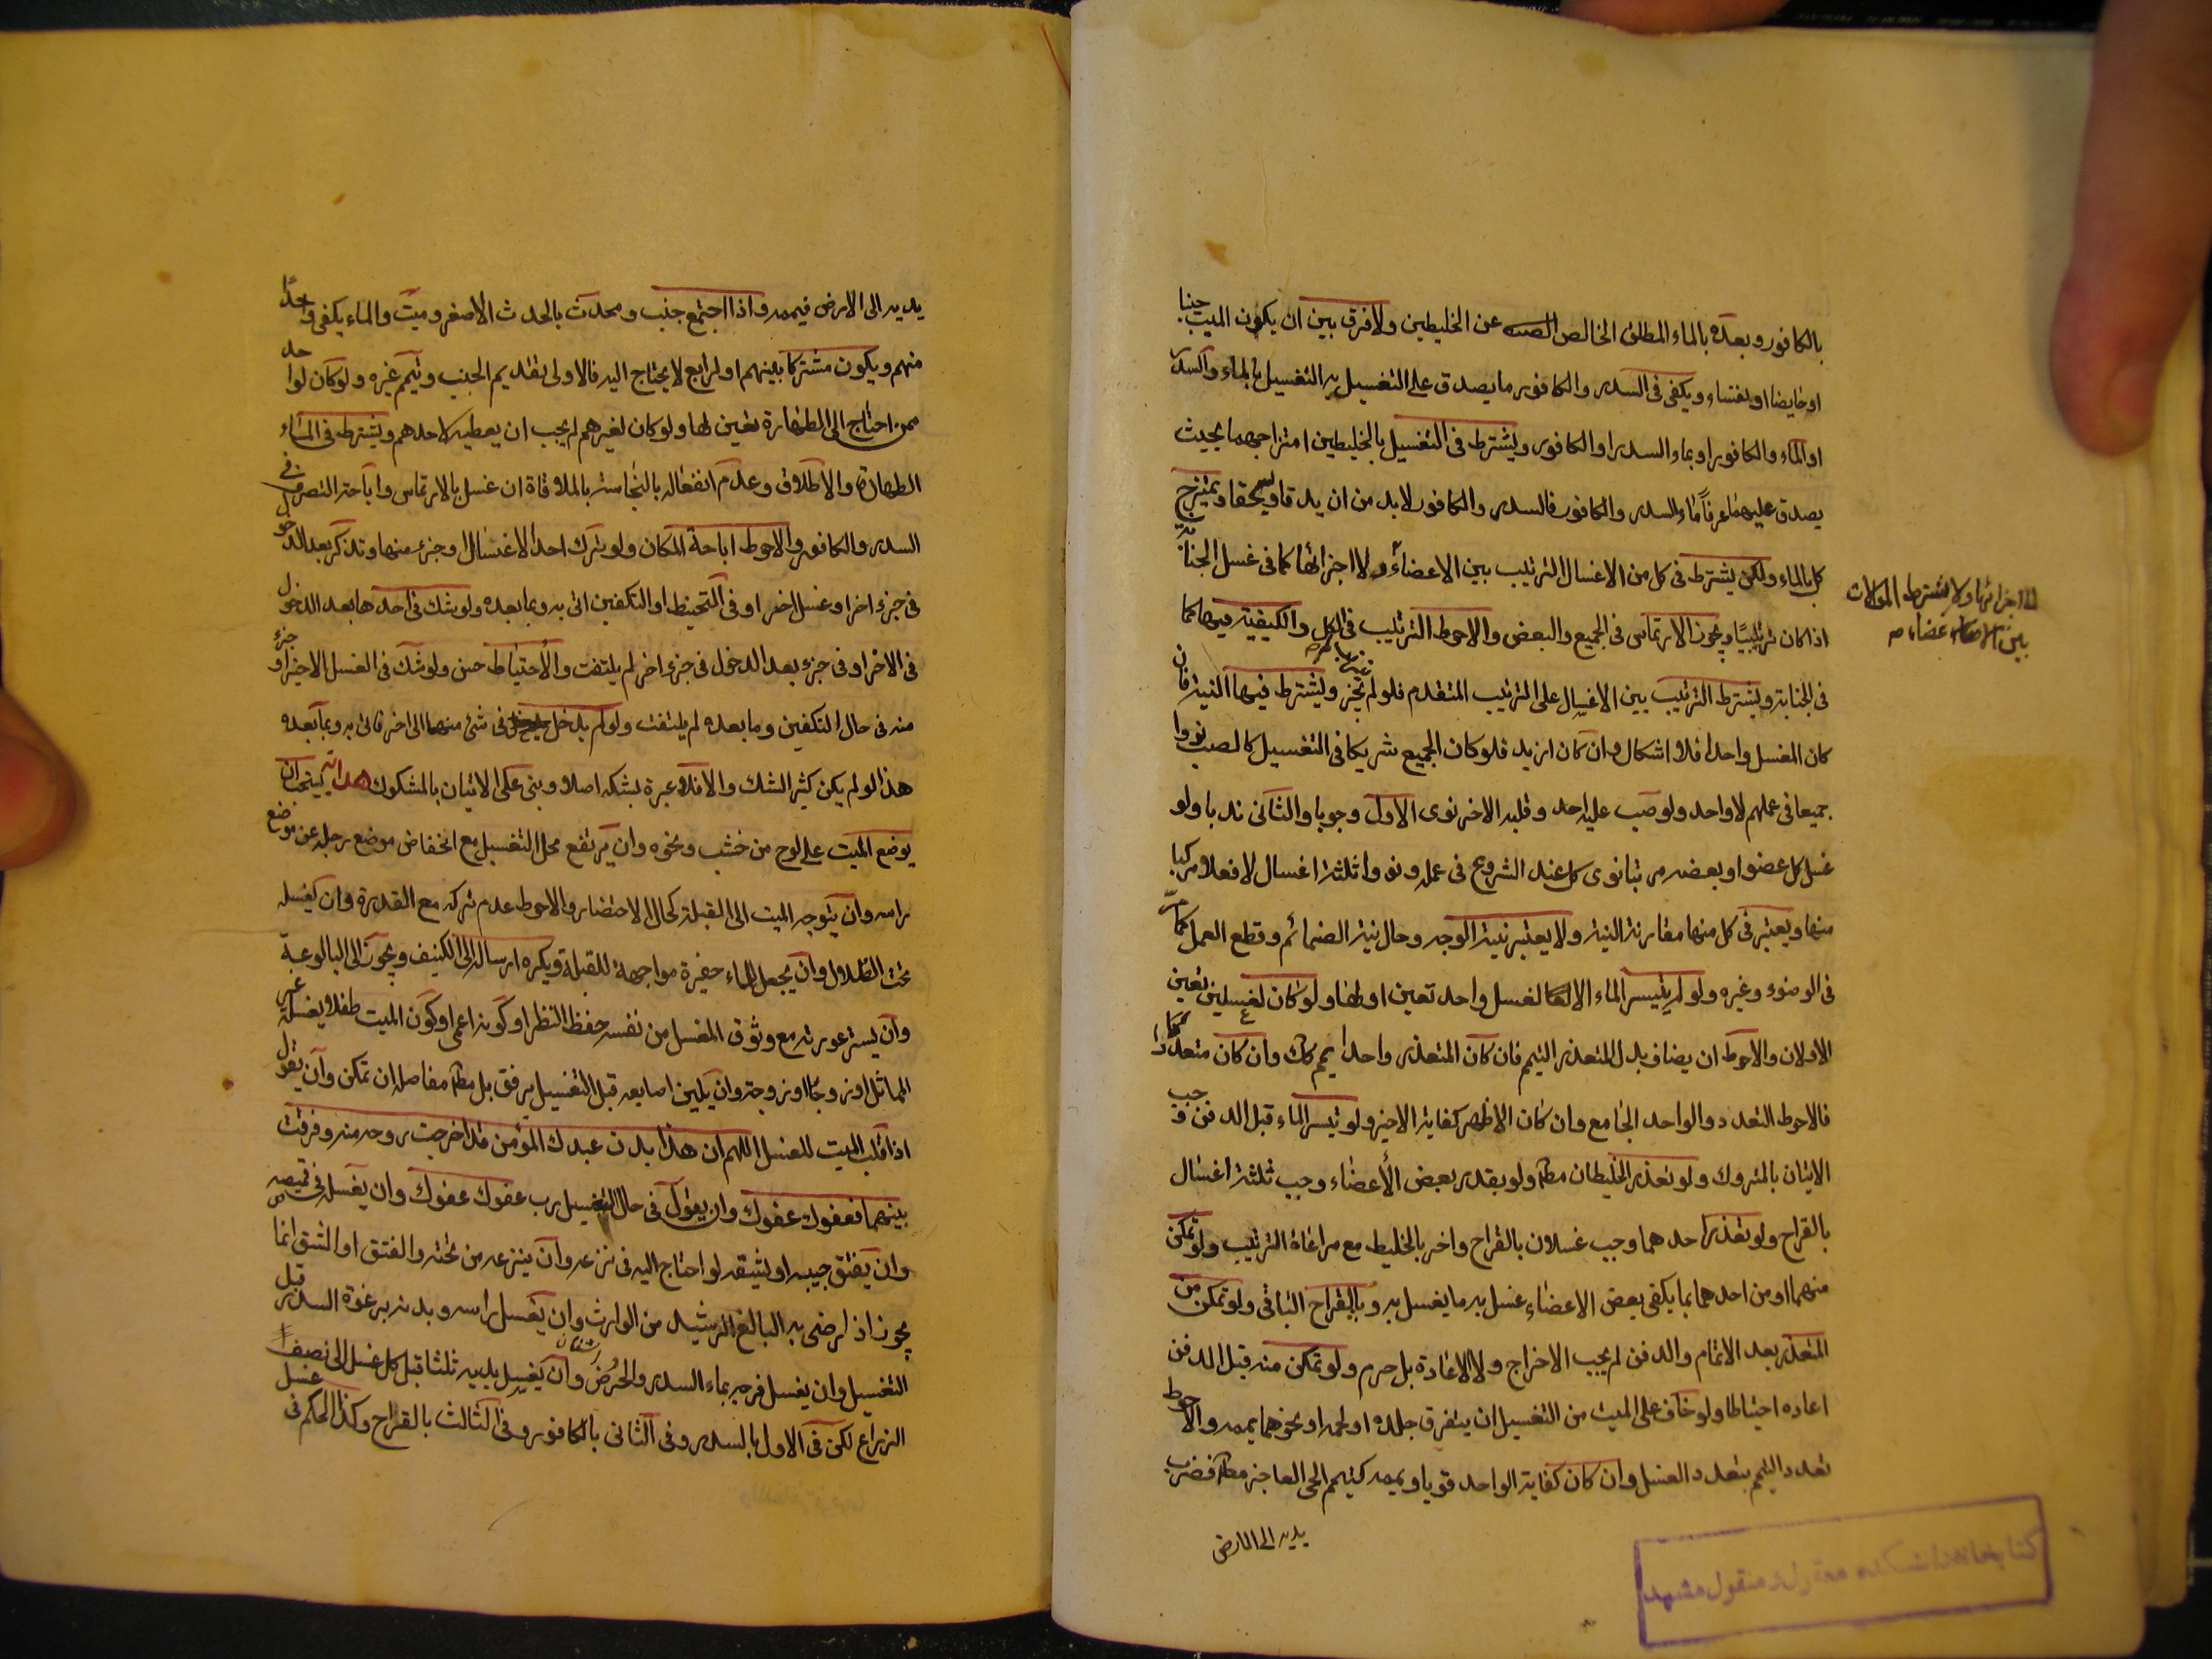 بالكافور وبعده بالماء المطلق الخالص عن الخليطين ولا فرق بين ان يكون الميت جنبا
او حايضا او نفساء ويكفى فى السدر والكافور ما يصدق على التغسيل به التغسيل بالماء والسدر
او الماء والكافور او بماء السدر او الكافور ويشترط فى التغسيل بالخليطين امتزاجهما بحيث
يصدق عليهما عرفا ماء السدر والكافور فالسدر والكافور لا بد من ان يدقا ويسحقا ويمتزج
كل بالماء ولكن يشترط فى كل من الاغسال الترتيب بين الاعضاء ولا اجزائها كما فى غسل الجنابة
اجزائها ولا يشترط الموالات
بين الاعضاء
اذا كان ترتيبيا ويجوز الارتماس فى الجميع والبعض والاحوط الترتيب فى الكل والكيفية فيها كما
فى الجنابة ويشترط الترتيب بين الاغسال على الترتيب المتقدم فلو لم يجز ويشترط فيها النية فان
كان المغسل واحدا فلا اشكال وان كان ازيد فلو كان الجميع شريكا فى التغسيل كالصب نووا
جميعا فى عملهم لا واحد ولو صب عليه احد وقلبه الاخر نوى الاول وجوبا والثانى ندبا ولو
غسل كل عضوا وبعضه مرتبا نوى كل عند الشروع فى عمله ونووا ثلثة اغسال لا فعلا مركبا
منها ويعتبر فى كل منها مقارنة النية ولا يعتبر نية الوجه وحال نية الضمائم وقطع العمل كما مر
فى الوضوء وغيره ولو لم يتيسر الماء الا لغسل واحد تعين اولها ولو كان لغسلين تعين
الاولان والاحوط ان يضاف بدل المتعذر التيمم فان كان المتعذر واحدا يمم كك وان كان متعددا
فالاحوط التعدد والواحد الجامع وان كان الاظهر كفاية الاخير ولو تيسر الماء قبل الدفن وجب
الاتيان بالمتروك ولو تعذر الخليطان مطلقا ولو بقدر بعض الأعضاء وجب ثلثة اغسال
بالقراح ولو تعذر احدهما وجب غسلان بالقراح واخر بالخليط مع مراعاة الترتيب ولو تمكن
منهما او من احدهما بما يكفى بعض الاعضاء غسل به ما يغسل به وبالقراح الباقى ولو تمكن من
المتعذر بعد الاتمام والدفن لم يجب الاخراج ولا الاعادة بل حرم ولو تمكن منه قبل الدفن
اعاده احتياطا ولو خاف على الميت من التغسيل ان يتفرق جلده او لحمه او نحوهما يممه والاحوط
تعدد التيمم بتعدد الغسل وان كان كفاية الواحد قويا وييممه كتيمم الحى العاجز فضرب
يديه الى الارض
كتابخانه دانشكده معقول و منقول مشهد
يديه الى الارض فيممه واذا اجتمع جنب ومحدث بالحدث الاصغر وميت والماء يكفى واحدا
منهم ويكون مشتركا بينهم او لرابع لا يحتاج اليه فالاولى تقديم الجنب وتيمم غيره ولو كان لواحد
ممن احتاج الى الطهارة تعين لها ولو كان لغيرهم لم يجب ان يعطيه لاحدهم ويشترط فى الماء
الطهارة والاطلاق وعدم انفعاله بالنجاسة بالملاقاة ان غسل بالارتماس واباحة التصرف فى
السدر والكافور والاحوط اباحة المكان ولو يترك احد الاغسال او جزء منها وتذكر بعد الدخول
فى جزء اخر او غسل اخر او فى التحنيط او التكفين اتى به وبما بعده ولو شك فى احدها بعد الدخول
فى الاخر او فى جزء بعد الدخول فى جزء اخر لم يلتفت والأحتياط حسن ولو شك فى الغسل الاخير او جزء
منه فى حال التكفين وما بعده لم يلتفت ولو لم يدخل فى شئ منهما الى اخر فاتى به وبما بعده
هذا لو لم يكن كثير الشك والا فلا عبرة بشكه اصلا وبنى على الاتيان بالمشكوك هداية يستحب ان
يوضع الميت على لوح من خشب ونحوه وان يرتفع محل التغسيل مع انخفاض موضع رجله عن موضع
راسه وان يتوجه الميت الى القبلة كحال الاحتضار والاحوط عدم تركه مع القدرة وان يغسله
تحت الظلال وان يجعل للماء حفيرة مواجهة للقبلة ويكره ارساله الى الكنيف ويجوز الى البالوعة
وان يستر عورته مع وثوق المغسل من نفسه حفظ النظر او كونه اعمى او كون الميت طفلا ويغسله غير
المماثل او زوجا او زوجة وان يلين اصابعه قبل التغسيل برفق بل مطلق مفاصله ان تمكن وان يقول
اذا قلب الميت للغسل اللهم ان هذا بدن عبدك المؤمن قد اخرجت روحه منه وفرقت
بينهما فعفوك عفوك وان يقول فى حال التغسيل رب عفوك عفوك وان يغسله فى قميصه
وان يفتق جيبه او يشقه لو احتاج اليه فى نزعه وان ينزعه من تحته والفتق او الشق انما
يجوز اذا رضى به البالغ الرشيد من الوارث وان يغسل راسه وبدنه برغوة السدر قبل
التغسيل وان يغسل فرجه بماء السدر والحرض وان يغسل يديه ثلثا قبل كل غسل الى نصف
اشنان
الزراع لكن فى الاول بالسدر وفى الثانى بالكافور وفى الثالث بالقراح وكذا الحكم فى غسل